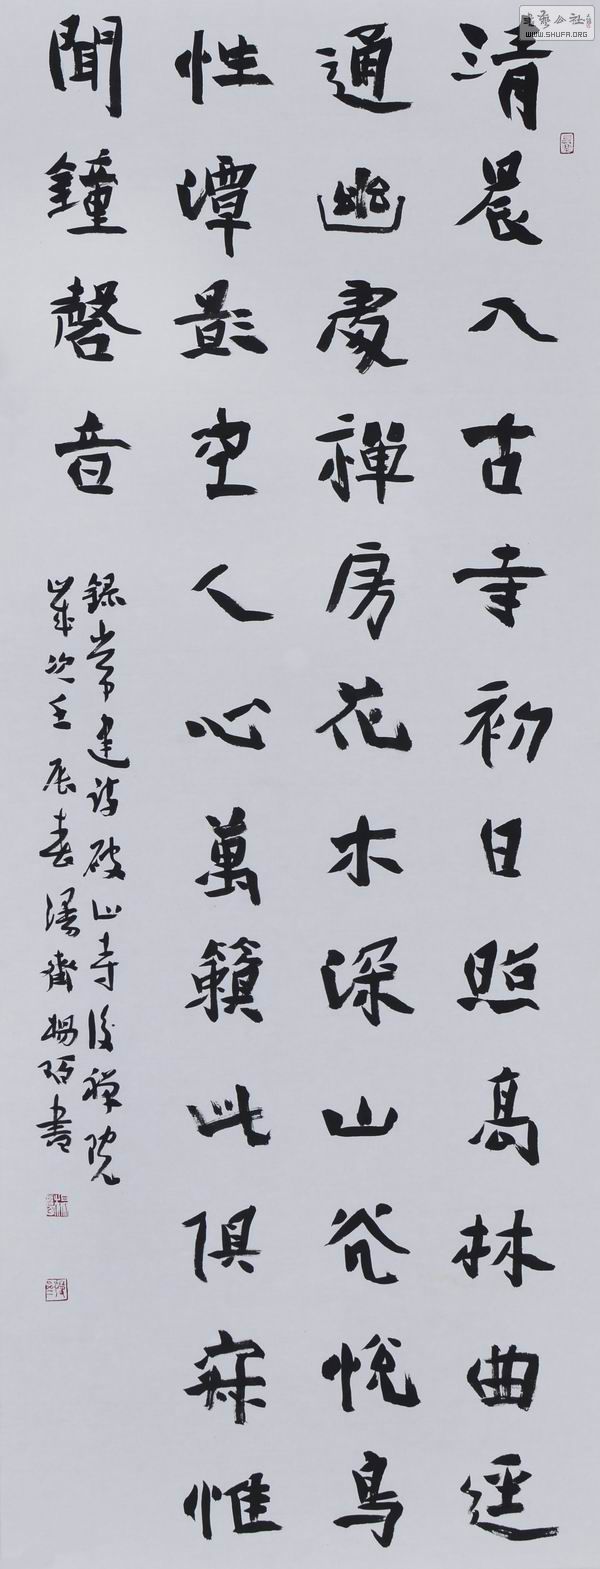 清晨入古寺初日照高林曲逕
通幽處禪房花木深山光悅鳥
性潭影空人心萬籟此俱寂惟
聞鐘磬音
錄常建詩破山寺後禪院
歲次壬辰春 齋楊 書
书艺公社
WWW.SHUFA.ORG